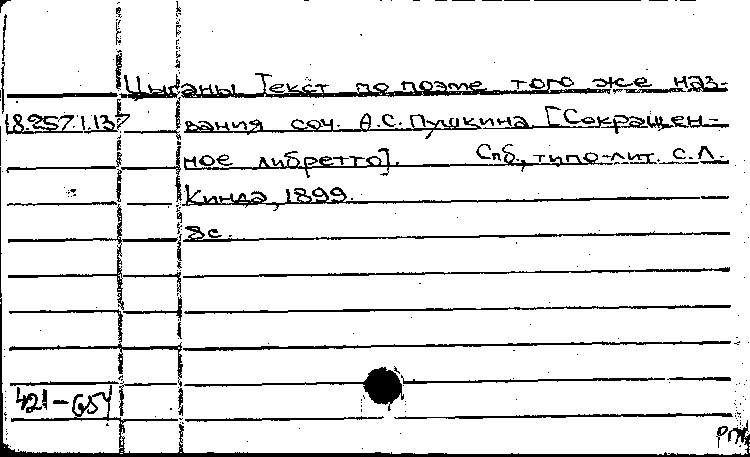 Цыганы Текст по поэме того же наз-
18.257.1.137 вания соч. А.С. Пушкина. [Сокращен-
ное либретто]. Спб., типо-лит. С.Л.
Кинда, 1899.
8с.
421-654